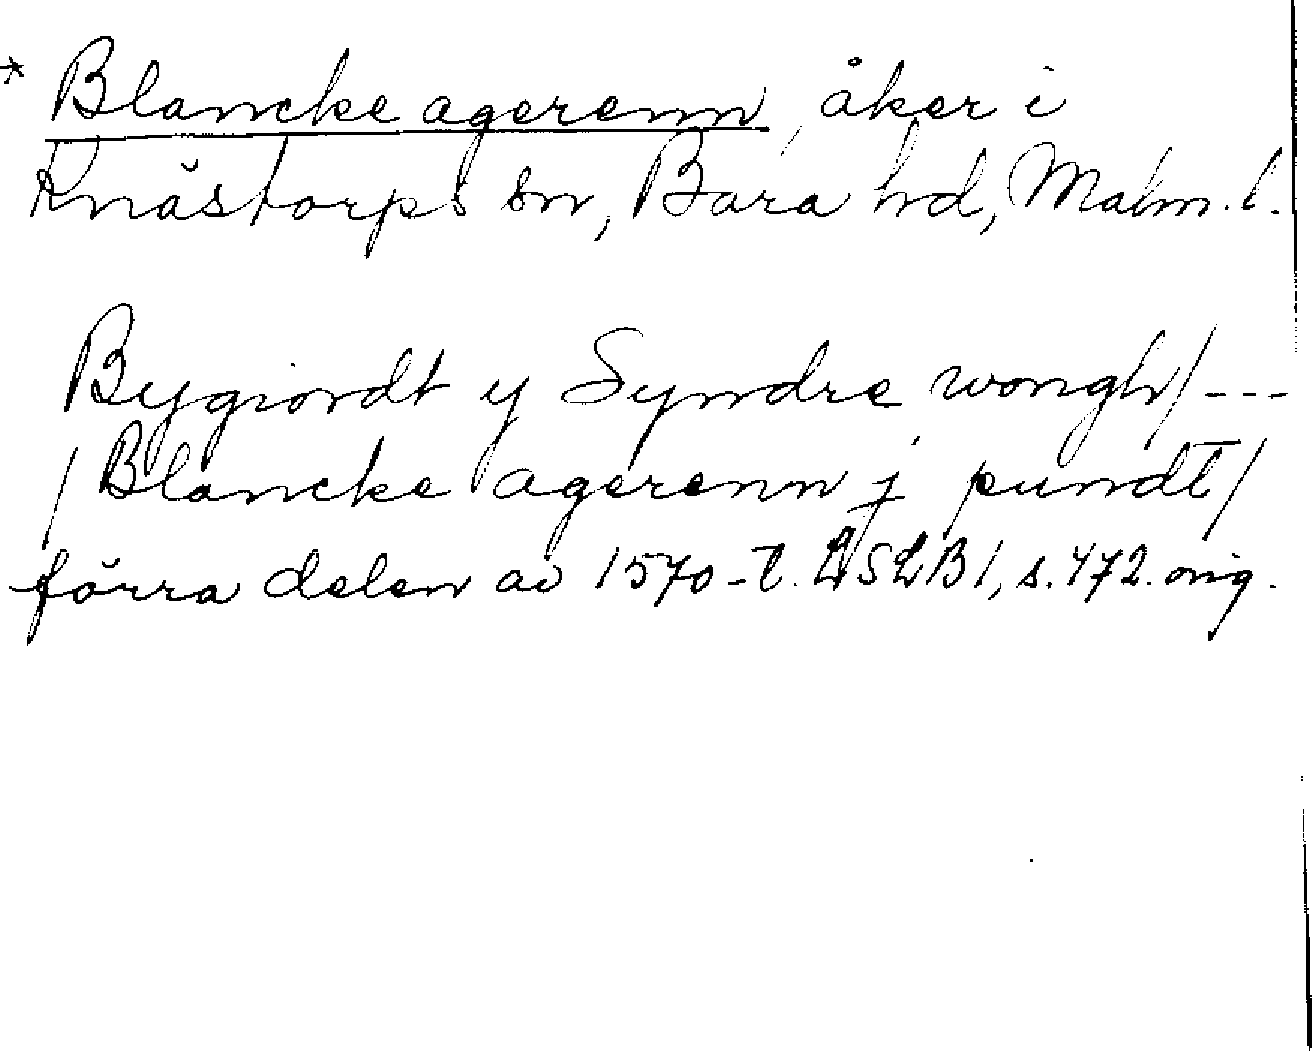 * Blancke agerenn, åker i
Knästorps sn, Bara hd, Malm. l.
Bygiordt y Syndre wongh/---
/Blancke agerenn j pundt/
förra delen av 1570-t. LSLB1, s. 472. orig.